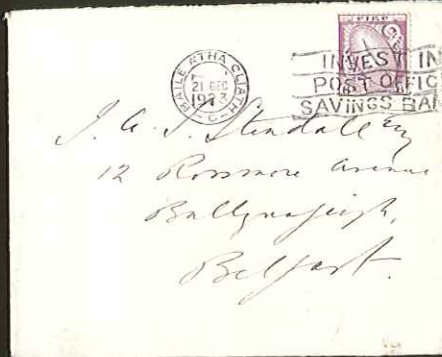 EIRE
BAILE ATHA CLIATH
21 DEC
1923
C
INVEST IN
POST OFFIC
SAVINGS BAN
J. A. S. Stendall Esq
12 Rossmore Avenue
Ballynafeigh,
Belfast.